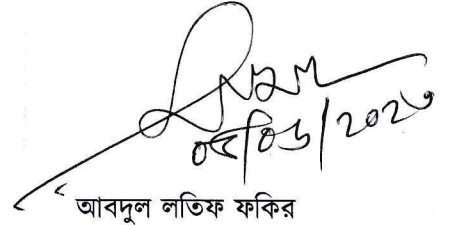 ০৫/০৬/২০২৩
আবদুল লতিফ ফকির